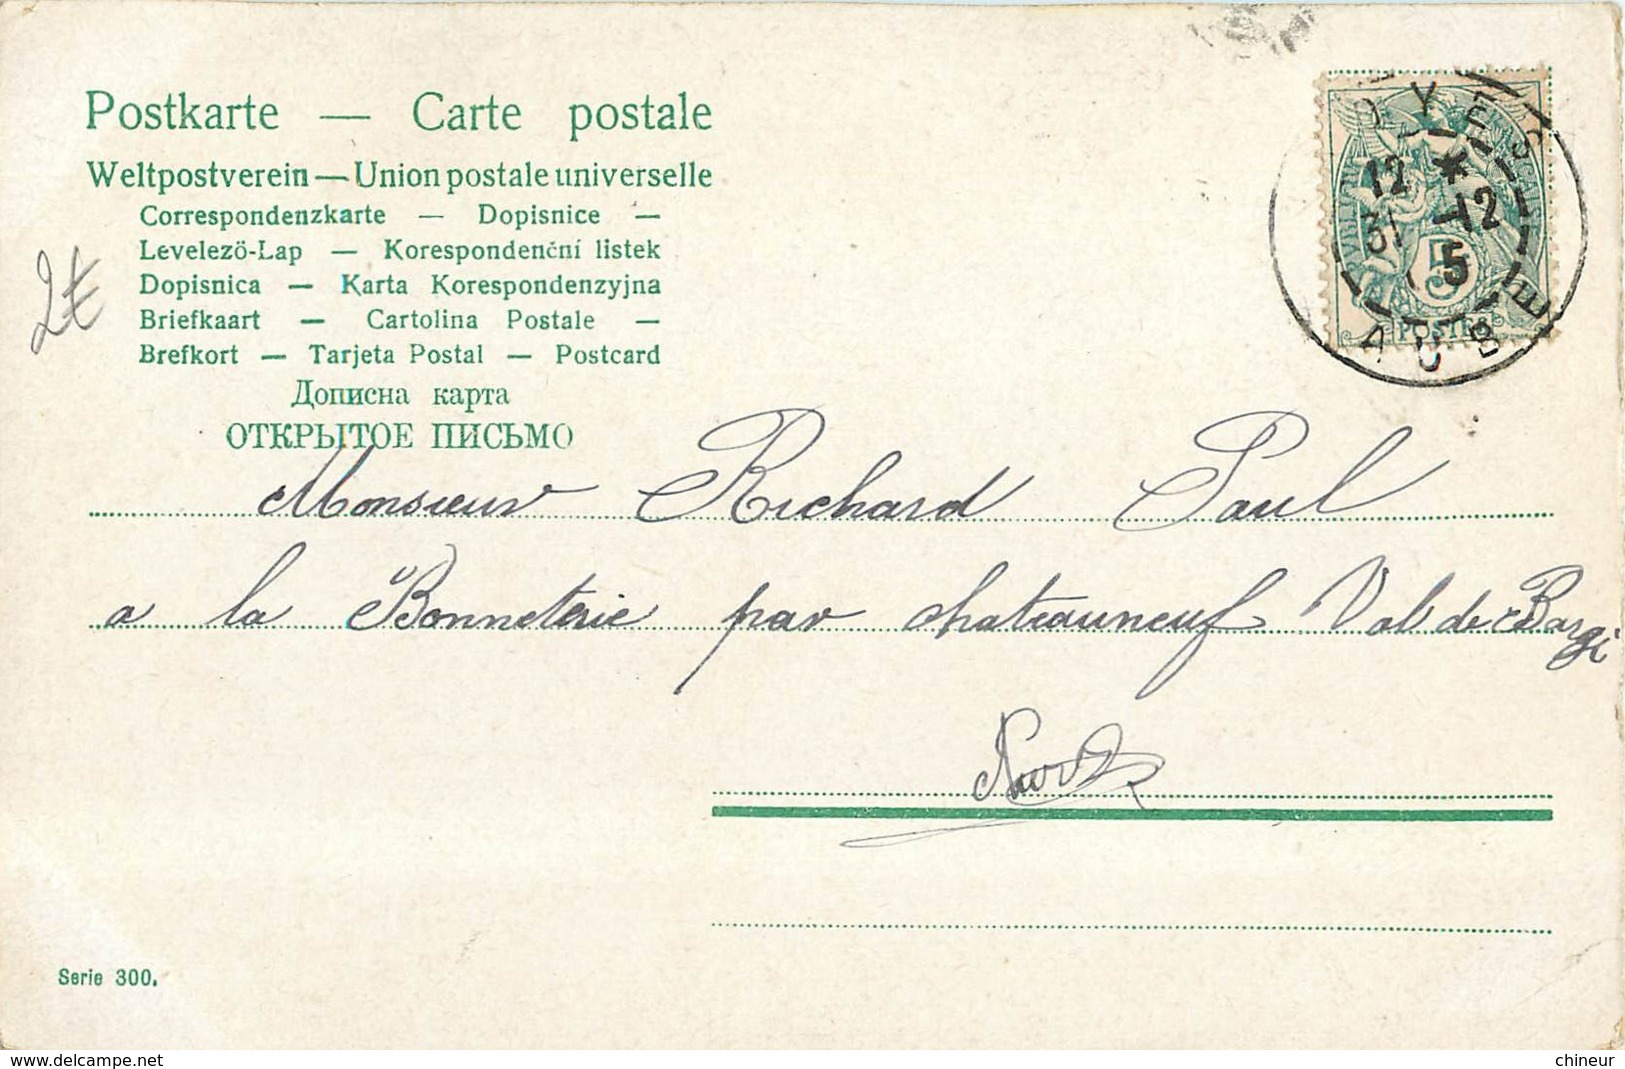 Postkarte — Carte postale
Weltpostverein — Union postale universelle
Correspondenzkarte — Dopisnice —
Levelezö-Lap — Korespondenční lístek
Dopisnica — Karta Korespondenzyjna
Briefkaart — Cartolina Postale —
Brefkort — Tarjeta Postal — Postcard
Дописна карта
ОТКРЫТОЕ ПИСЬМО
2€
12 *
31 -12
5
AUBE
5
POSTES
Monsieur Richard Paul
a la Bonneterie par chateauneuf Val de Bargi
Serie 300.
www.delcampe.net
chineur